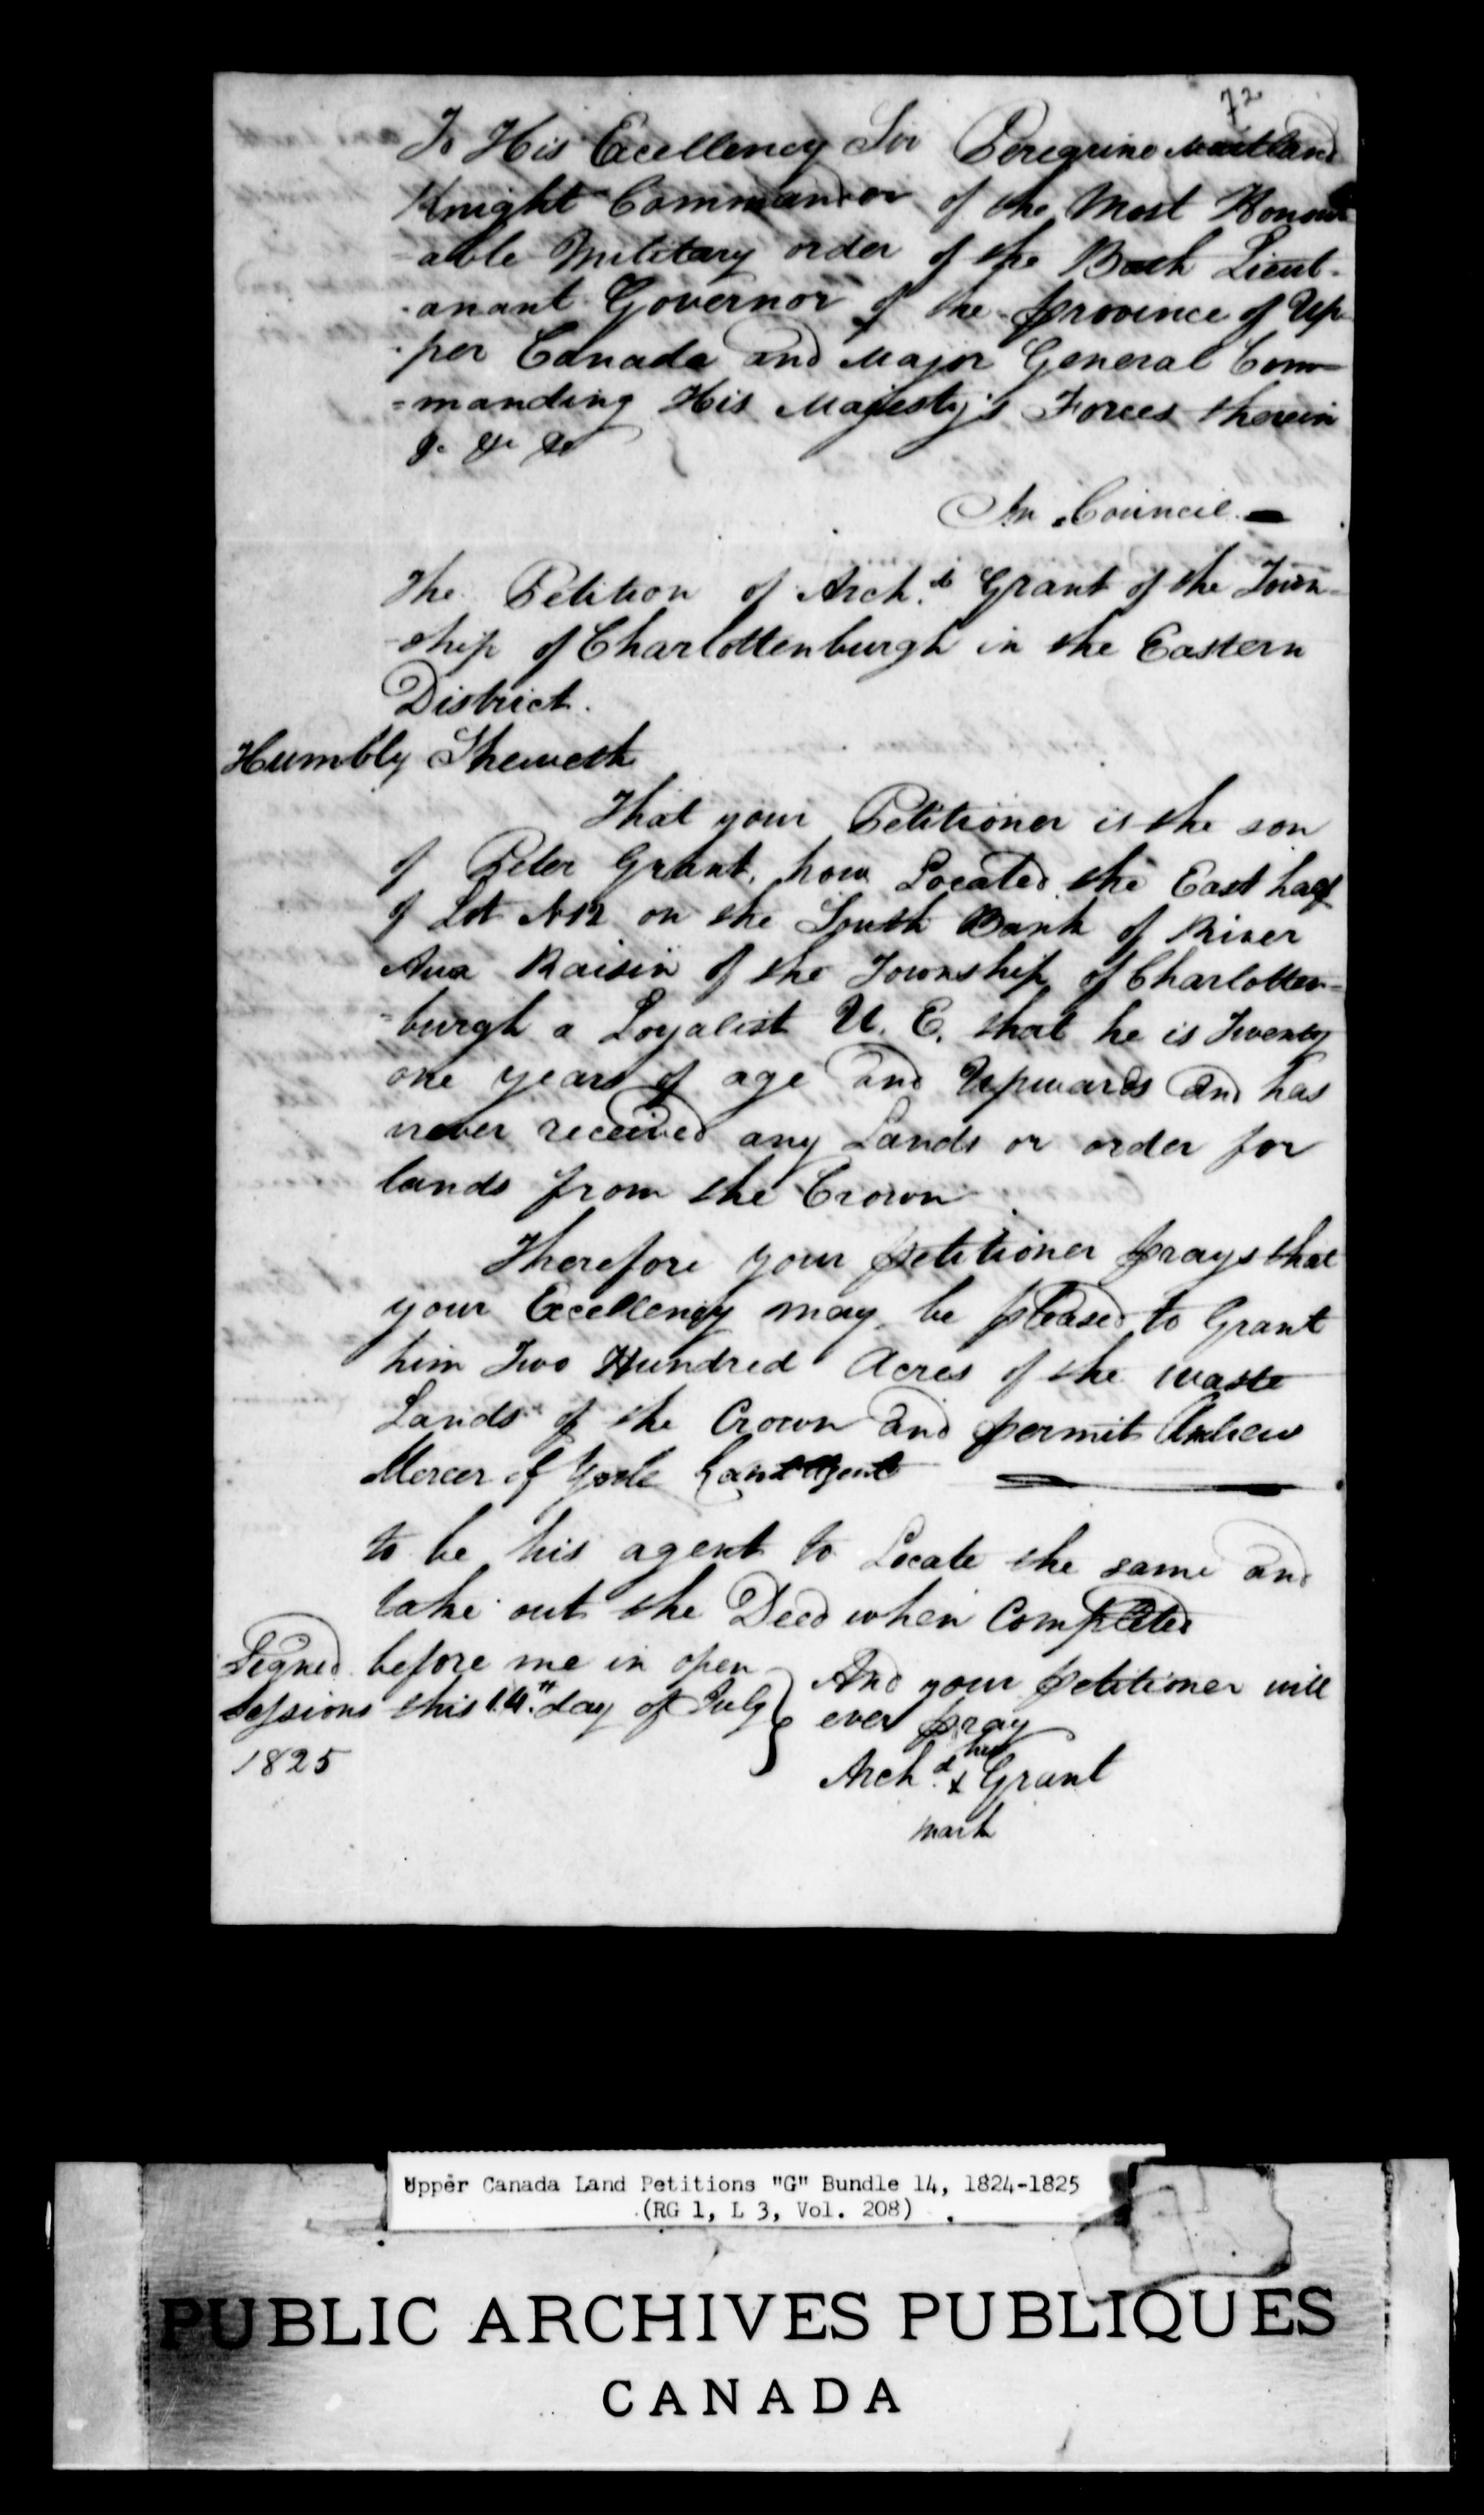 72
To His Excellency Sir Peregrine Maitland
Knight Commander of the Most Honour
-able Military order of the Bath Lieut-
-anant Governor of the province of Up-
-per Canada and Major General Com=
=manding His Majesty's Forces therein
&c &c &c
In Council.
The Petition of Arch.d Grant of the Town=
-ship of Charlottenburgh in the Eastern
District.
Humbly Sheweth
That your Petitioner is the son
of Peter Grant, how Located the East half
of Lot No 12 on the South Bank of River
Aux Raisin of the Township of Charlotten=
=burgh a Loyalist U. E. that he is Twenty
one years of age and Upwards and has
never received any Lands or order for
lands from the Crown
Therefore your petitioner prays that
your Excellency may be pleased to Grant
him Two Hundred Acres of the waste
Lands of the Crown and permit Andrew
Mercer of York Land Agent
to be his agent to Locate the same and
take out the Deed when Completed
Signed before me in open
Sessions this 14.th day of July
1825
And your petitioner will
ever pray
his
Arch.d x Grant
mark
Upper Canada Land Petitions "G" Bundle 14, 1824-1825
(RG 1, L 3, Vol. 208)
PUBLIC ARCHIVES PUBLIQUES
CANADA